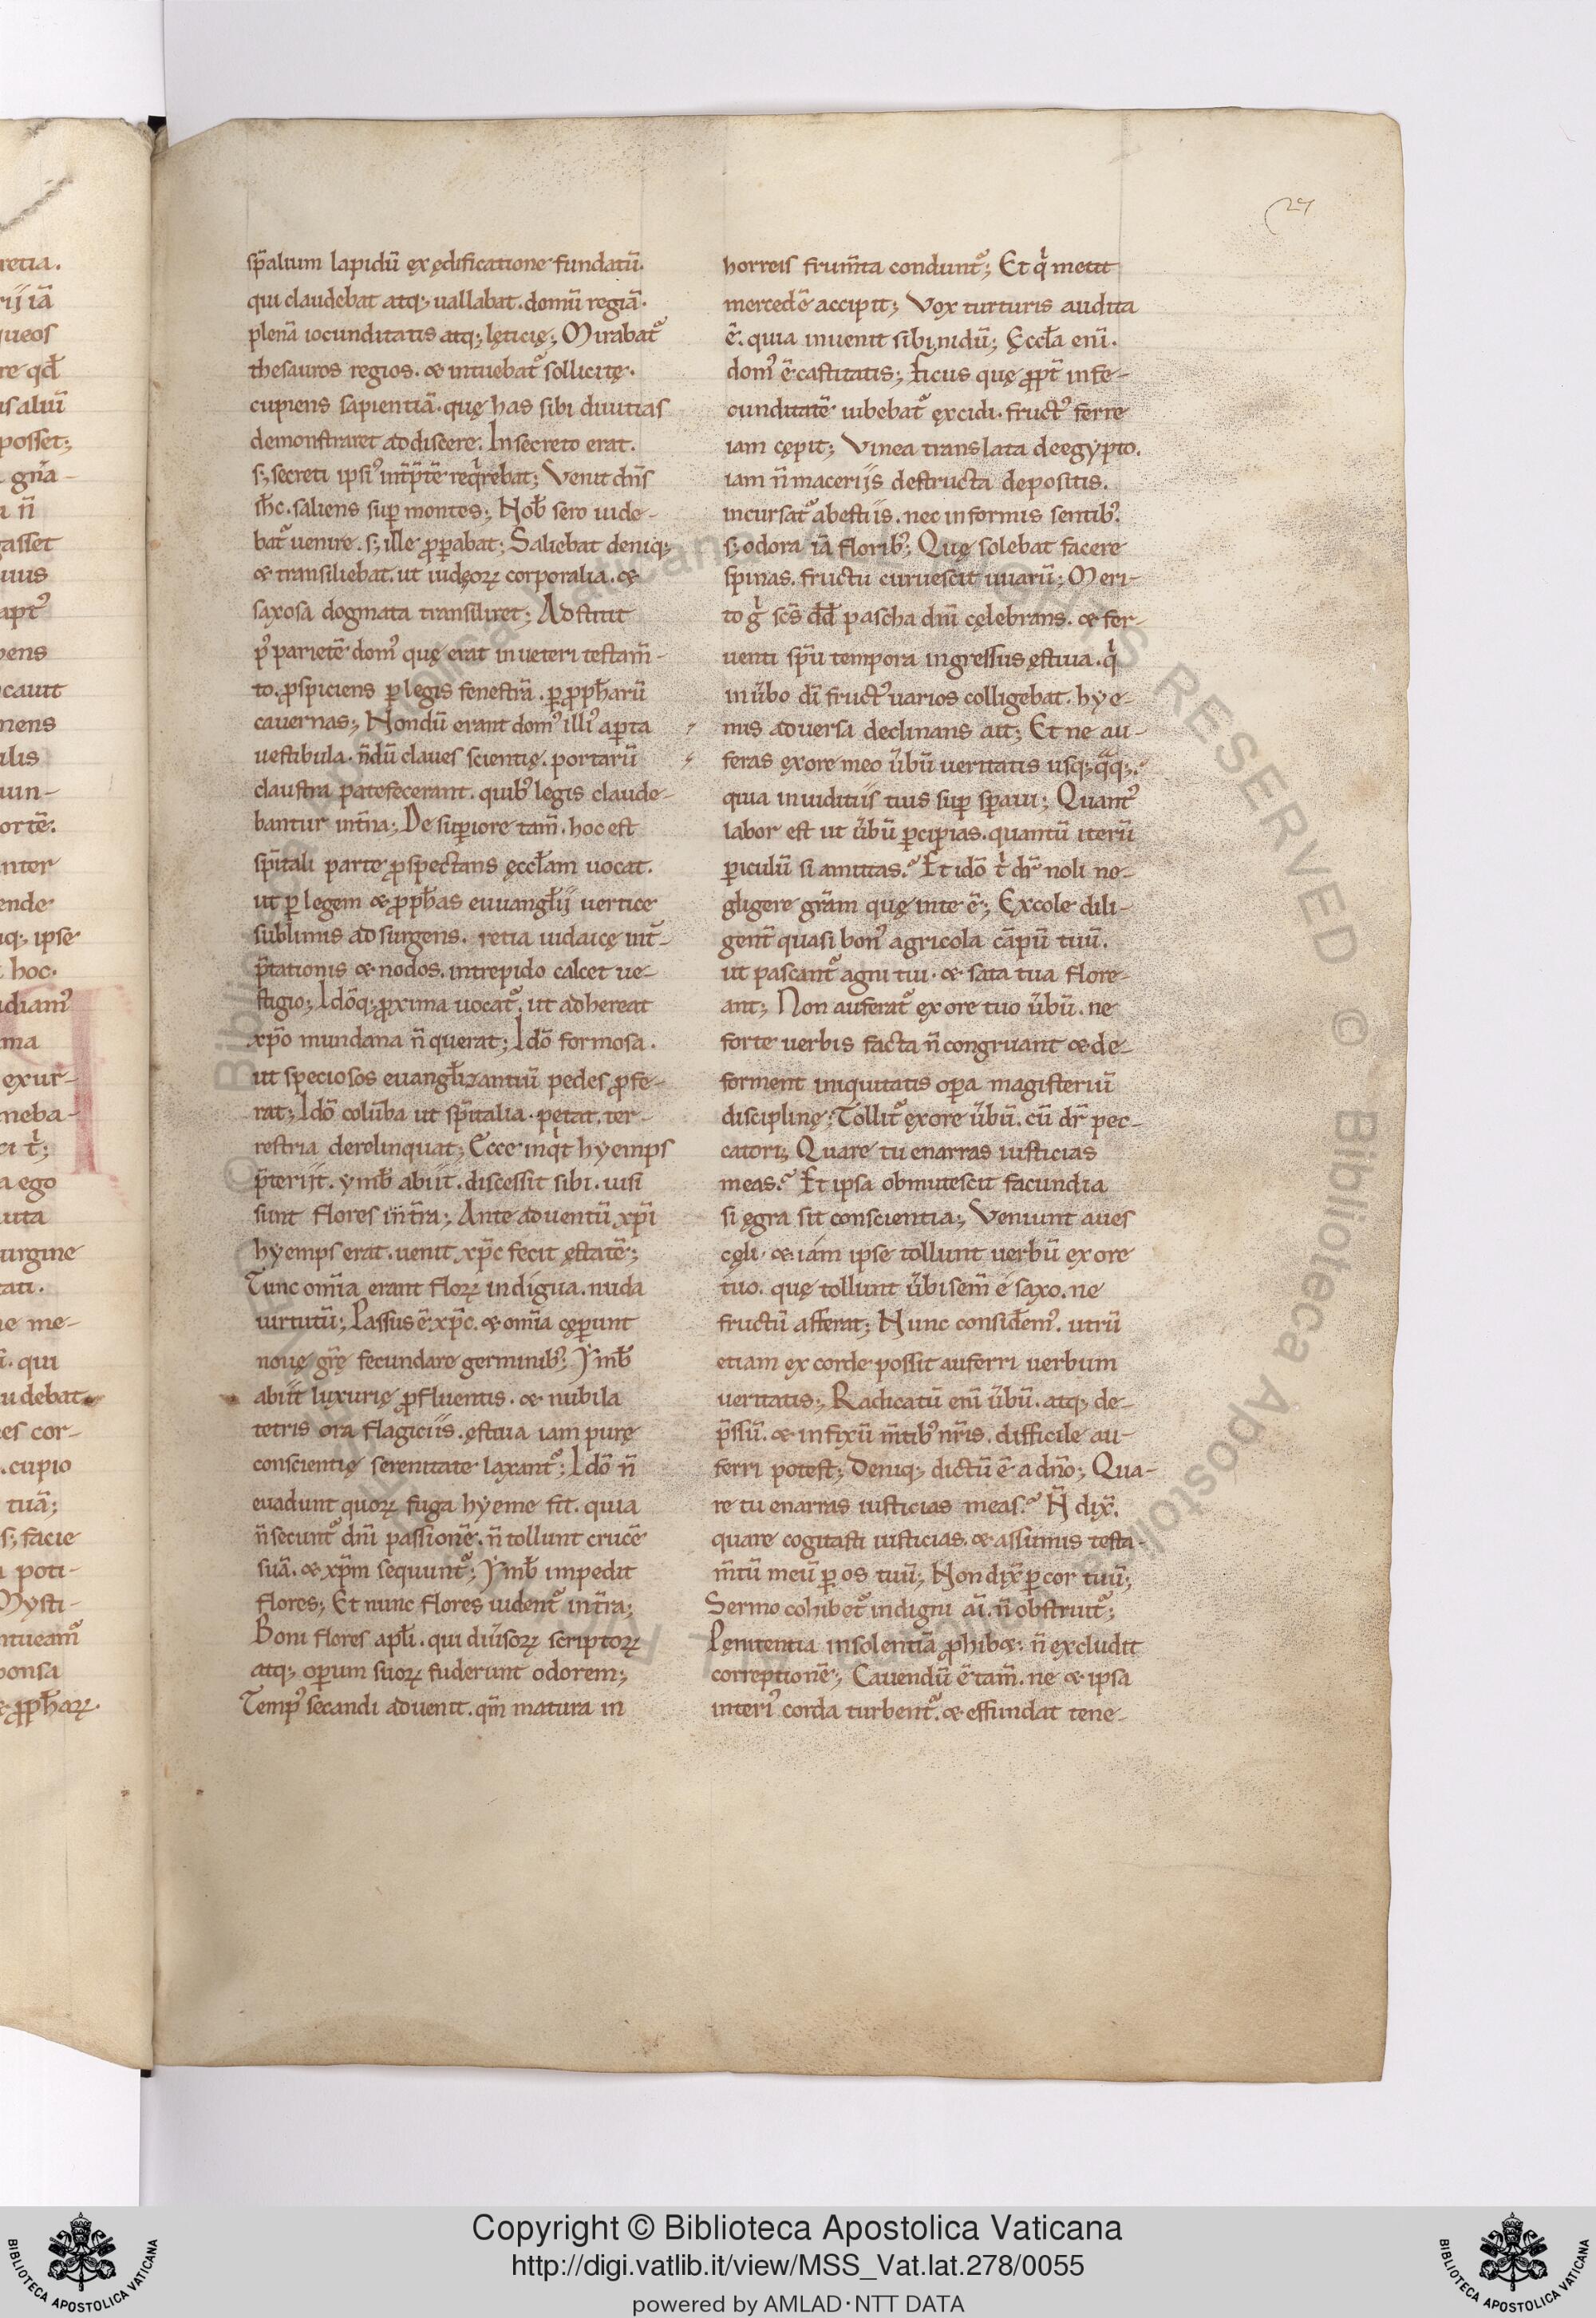 27
retia.
rij iã
queos
re qđ
salíũ
posset;
gñа-
n̄
asset
uus
apt᾽
bens
cauit
mens
ilis
uun-
ortẽ.
nter
ende
q; ipse
hoc.
diam᾽
ma
exur-
neba-
a ego
uta
uirgine
tati.
e me-
qui
udebat.
es cor-
.cupio
tuã;
s; facie
poti-
Mysti-
ntueam᷒
ponsa
ꝓph̄aꝝ.
sp̃alium lapidũ ex ędificatione fundatũ.
qui claudebat atq; uallabat. domũ regiã.
plenã iocunditatis atq; lęticię; Mirabat᷒
thesauros regios. & intuebat᷒ sollicitę.
cupiens sapientiã. quę has sibi diuitias
demonstraret addiscere. In secreto erat.
s; secreti ipsi᾽ int̃p̃tẽ reqͥrebat; Venit dn̄s
ih̄c. saliens suꝑ montes; Nob̄ sero uide-
bat᷒ uenire. s; ille ꝓꝑabat; Saliebat deniq;
& transiliebat. ut iudęoꝝ corporalia. &
saxosa dogmata transiliret; Adstitit
p᾽ parietẽ dom᾽ quę erat in ueteri testam̃-
to. ꝓspiciens ꝑ legis fenestrã. ꝑ ꝓph̄arũ
cauernas; Nondũ erant dom᾽ illi᾽ aꝑta
uestibula. n̄dũ claues scientię. portarũ
claustra patefecerant. quib᾽ legis claude-
bantur int̃na; De suꝑiore tam̃. hoc est
sp̃itali parte ꝓspectans ęccl̄am uocat.
ut ꝑ legem & ꝓph̄as euuangl̄ij uertice
sublimis adsurgens. retia iudaicę int̃-
p̃tationis & nodos. intrepido calcet ue-
stigio; Idõq; ꝓxima uocat᷒. ut adhereat
xp̃o mundana n̄ querat; Idõ formosa.
ut speciosos euangl̄izantiũ pedes ꝓfe-
rat; Idõ colũba ut sp̃italia. petat. ter-
restria derelinquat; Ecce inqͥt hyemps
p̃terijt. ymb̄ abiit. discessit sibi. uisi
sunt flores in t̃ra; Ante aduentũ xp̃i
hyemps erat. uenit xp̃c fecit ęstatẽ;
Tunc om̃ia erant floꝝ indigua. nuda
uirtutũ; Passus ẽ xp̃c. & om̃ia cęꝑunt
nouę gr̃ę fecundare germinib᾽; Ymb̄
abiit luxurię ꝓfluentis. & nubila
tetris ora flagiciis. ęstiua iam purę
conscientię serenitate laxant᷒; Idõ n̄
euadunt quoꝝ fuga hyeme fit. quia
n̄ secunt᷒ dn̄i passionẽ. n̄ tollunt crucẽ
suã. & xp̃m sequunt᷒; Ymb̄ impedit
flores; Et nunc flores uident᷒ in t̃ra;
Boni flores apl̄i. qui diũsoꝝ scriptoꝝ
atq; oꝑum suoꝝ fuderunt odorem;
Temp᾽ secandi aduenit. qm̃ matura in
horreis frum̃ta condunt᷒; Et qͥ metit
mercedẽ accipit; Vox turturis audita
ẽ. quia inuenit sibi nidũ; Ęccl̄a eni̅.
dom᾽ ẽ castitatis; Ficus quę ꝓpt̃ infe-
cunditatẽ iubebat᷒ excidi. fruct᾽ ferre
iam cępit; Vinea translata de egypto.
iam n̄ macerijs destructa depositis.
incursat᷒ a bestiis. nec informis sentib᾽.
s; odora iã florib᾽; Quę solebat facere
spinas. fructu curuescit uuarũ; Meri-
to gͥ sc̄s dd̄ pascha dni̅ cęlebrans. & fer-
uenti sp̃u tempora ingressus ęstiua. qͥ
in ũbo di̅ fruct᾽ uarios colligebat. hye-
mis aduersa declinans ait; Et ne au-
feras ex ore meo ũbũ ueritatis usq; q̃q;.
quia in iuditiis tuis suꝑ sꝑaui; Quant᾽
labor est ut ũbũ ꝑcipias. quantũ iterũ
ꝑiculũ si amittas? Et idõ tͥ dr̃ noli ne-
gligere gr̃am quę in te ẽ; Excole dili-
gent̃ quasi bon᾽ agricola cãpũ tuũ.
ut pascant᷒ agni tui. & sata tua flore-
ant; Non auferat᷒ ex ore tuo ũbũ. ne
forte uerbis facta n̄ congruant & de-
forment iniquitatis oꝑa magisteriũ
disciplinę; Tollit᷒ ex ore ũbũ. cũ dr̃ pec-
catori; Quare tu enarras iusticias
meas? Et ipsa obmutescit facundia
si ęgra sit conscientia; Veniunt aues
cęli. & iam ipse tollunt uerbũ ex ore
tuo. quę tollunt ũbi sem̃ e saxo. ne
fructũ afferat; Nunc consid̄em᾽. utrũ
etiam ex corde possit auferri uerbum
ueritatis; Radicatũ eni̅ ũbũ. atq; de-
p̃ssũ. & infixũ m̃tib᾽ nr̃is. difficile au-
ferri potest; Deniq; dictũ ẽ a dn̄o; Qua-
re tu enarras iusticias meas? N̄ dix̃.
quare cogitasti iusticias. & assumis testa-
m̃tũ meũ ꝑ os tuũ; Non dix̃ ꝑ cor tuũ;
Sermo cohibet᷒ indigni ai̅. n̄ obstruit᷒;
Pęnitentia insolentiã ꝓhib&. n̄ excludit
correptionẽ; Cauendũ ẽ tam̃. ne & ipsa
interi᾽ corda turbent᷒. & effundat tene-
© Biblioteca Apostolica Vaticana ALL RIGHTS RESERVED
Copyright © Biblioteca Apostolica Vaticana
http://digi.vatlib.it/view/MSS_Vat.lat.278/0055
powered by AMLAD·NTT DATA
BIBLIOTECA APOSTOLICA VATICANA
BIBLIOTECA APOSTOLICA VATICANA